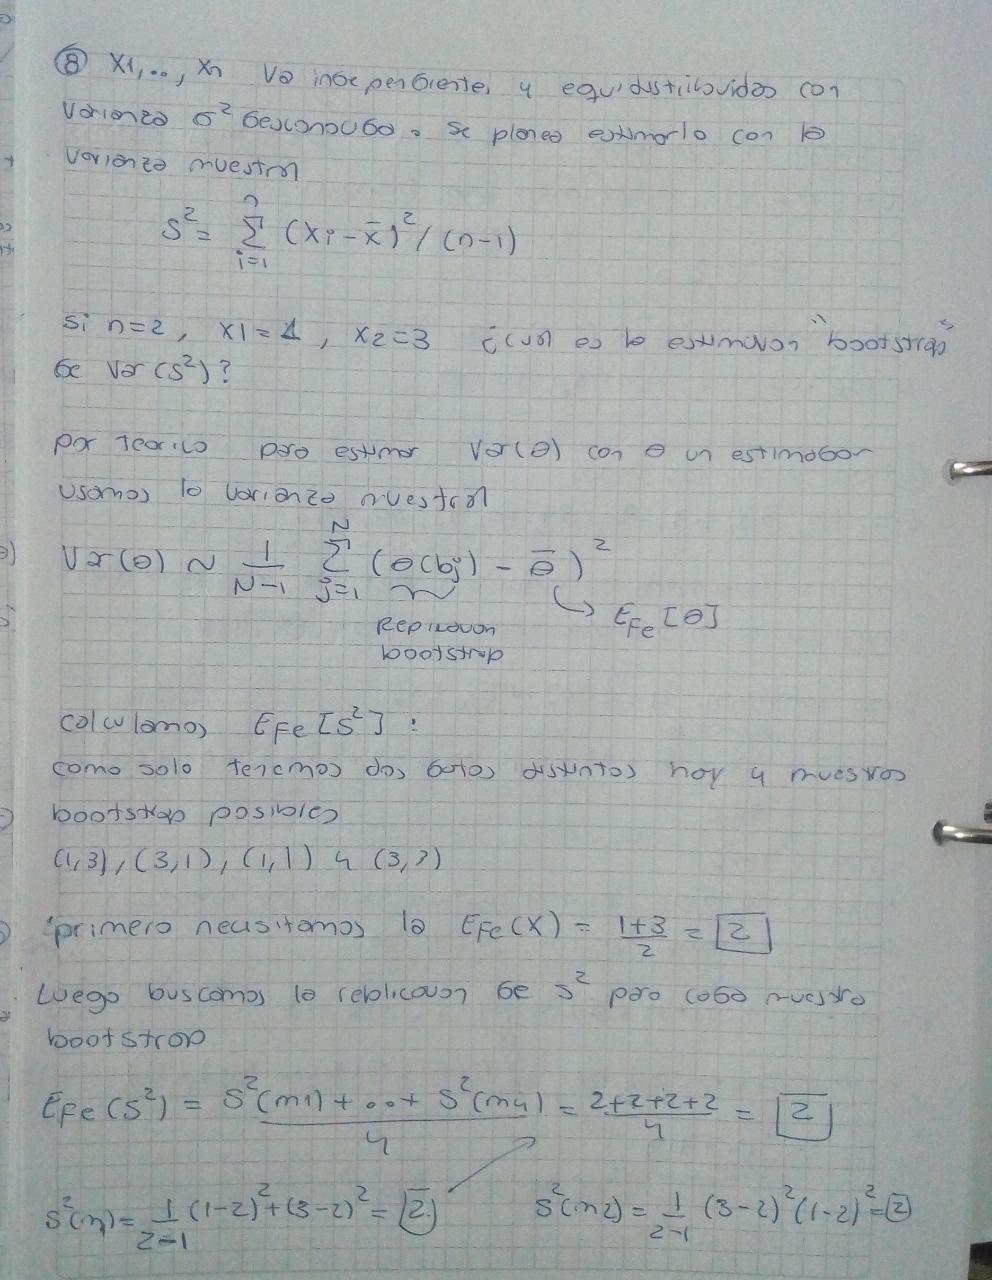 ⑧ X1,.., Xn Va independientes y equidistribuidas con
varianza σ² desconocida. Se planea estimarla con la
varianza muestral
S² = Σ_{i=1}^{n} (Xi - x̄)² / (n-1)
Si n=2, X1=1, X2=3 ¿cual es la estimacion "bootstrap"
de Var(S²)?
por teorico para estimar Var(θ) con θ un estimador
usamos la varianza muestral
Var(θ) ~ 1/(N-1) Σ_{j=1}^{N} (θ(bj) - θ̄)²
↳ EFe[θ]
Replicacion
bootstrap
calculamos EFe[S²] :
como solo tenemos dos datos distintos hay 4 muestras
bootstrap posibles
(1,3), (3,1), (1,1) y (3,3)
primero necesitamos la EFe(X) = (1+3)/2 = 2
Luego buscamos la replicacion de S² para cada muestra
bootstrap
EFe(S²) = (S²(m1)+..+ S²(m4))/4 = (2+2+2+2)/4 = 2
S²(m1) = 1/(2-1) (1-2)² + (3-2)² = 2 S²(m2) = 1/(2-1) (3-2)² (1-2)² = 2